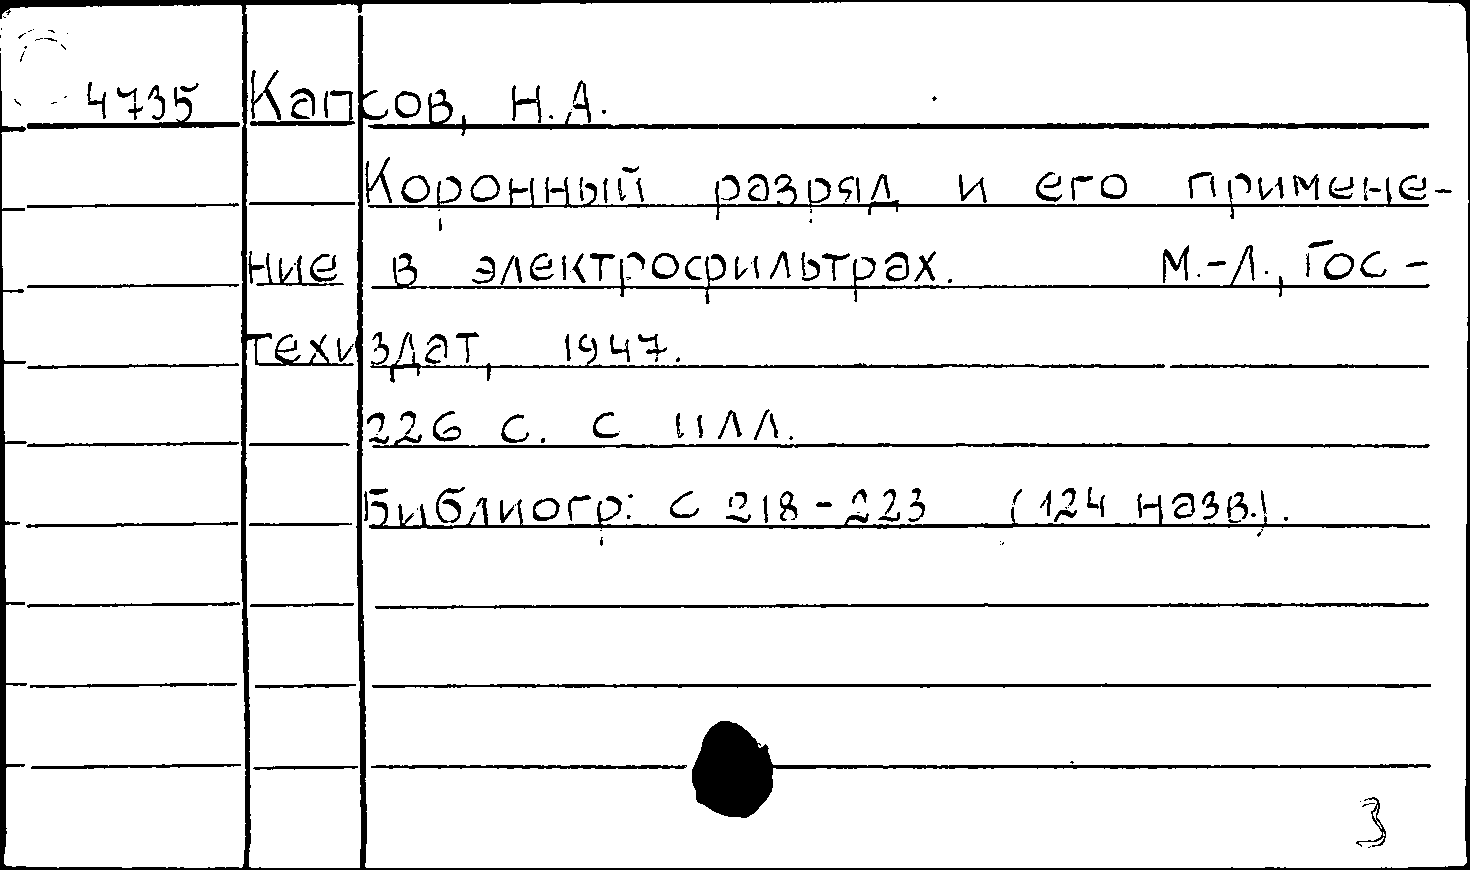 4735 Капсов, Н.А.
Коронный разряд и его примене-
ние в электрофильтрах. М.-Л., Гос-
техиздат, 1947.
226 с. с илл.
Библиогр: с 218-223 (124 назв.).
3